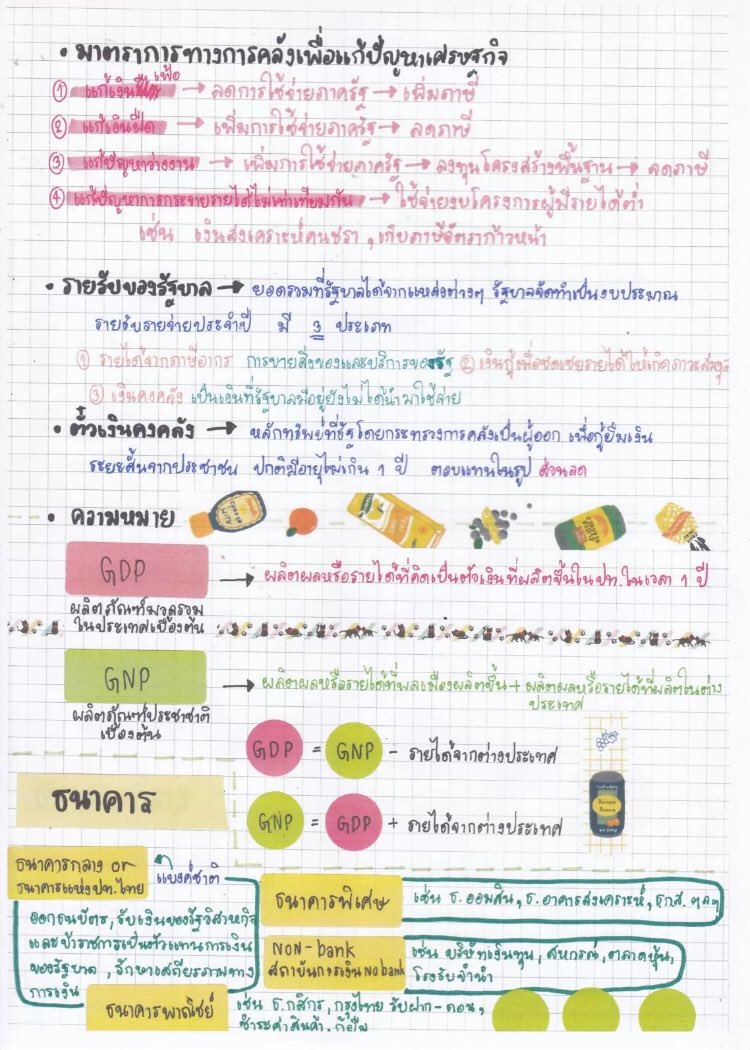 • มาตราการทางการคลังเพื่อแก้ปัญหาเศรษฐกิจ
① แก้เงินเฟ้อ → ลดการใช้จ่ายภาครัฐ → เพิ่มภาษี
② แก้เงินฝืด → เพิ่มการใช้จ่ายภาครัฐ → ลดภาษี
③ แก้ปัญหาว่างงาน → เพิ่มการใช้จ่ายภาครัฐ → ลงทุนโครงสร้างพื้นฐาน → ลดภาษี
④ แก้ปัญหาการกระจายรายได้ไม่เท่าเทียมกัน → ใช้จ่ายงบโครงการผู้มีรายได้ต่ำ
เช่น เงินสงเคราะห์คนชรา , เก็บภาษีอัตราก้าวหน้า
• รายรับของรัฐบาล → ยอดรวมที่รัฐบาลได้จากแหล่งต่างๆ รัฐบาลจัดทำเป็นงบประมาณ
รายรับรายจ่ายประจำปี มี 3 ประเภท
① รายได้จากภาษีอากร การขายสิ่งของและบริการของรัฐ ② เงินกู้เพื่อชดเชยรายได้ให้เกิดภาวะสมดุล
③ เงินคงคลัง เป็นเงินที่รัฐบาลมีอยู่ยังไม่ได้นำมาใช้จ่าย
• ตั๋วเงินคงคลัง → หลักทรัพย์ที่รัฐโดยกระทรวงการคลังเป็นผู้ออก เพื่อกู้ยืมเงิน
ระยะสั้นจากประชาชน ปกติมีอายุไม่เกิน 1 ปี ตอบแทนในรูป ส่วนลด
• ความหมาย
GDP → ผลิตผลหรือรายได้ที่คิดเป็นตัวเงินที่ผลิตขึ้นในปท.ในเวลา 1 ปี
ผลิตภัณฑ์มวลรวม
ในประเทศเบื้องต้น
GNP → ผลิตผลหรือรายได้ที่พลเมืองผลิตขึ้น + ผลิตผลหรือรายได้ที่ผลิตในต่าง
ประเทศ
ผลิตภัณฑ์ประชาชาติ
เบื้องต้น
GDP = GNP - รายได้จากต่างประเทศ
ธนาคาร
GNP = GDP + รายได้จากต่างประเทศ
ธนาคารกลาง or
ธนาคารแห่งปท.ไทย
แบงค์ชาติ
ออกธนบัตร, รับเงินของรัฐวิสาหกิจ
และข้าราชการเป็นตัวแทนการเงิน
ของรัฐบาล , รักษาเสถียรภาพทาง
การเงิน
ธนาคารพิเศษ
เช่น ธ.ออมสิน, ธ.อาคารสงเคราะห์, ธกส. ฯลฯ
NON-bank
สถาบันการเงิน No bank
เช่น บริษัทเงินทุน, สหกรณ์, ตลาดหุ้น,
โรงรับจำนำ
ธนาคารพาณิชย์
เช่น ธ.กสิกร, กรุงไทย รับฝาก-ถอน,
ชำระค่าสินค้า, กู้ยืม